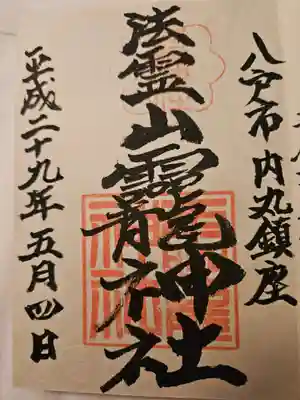 八戸市内丸鎮座
法霊山龗神社
平成二十九年五月四日